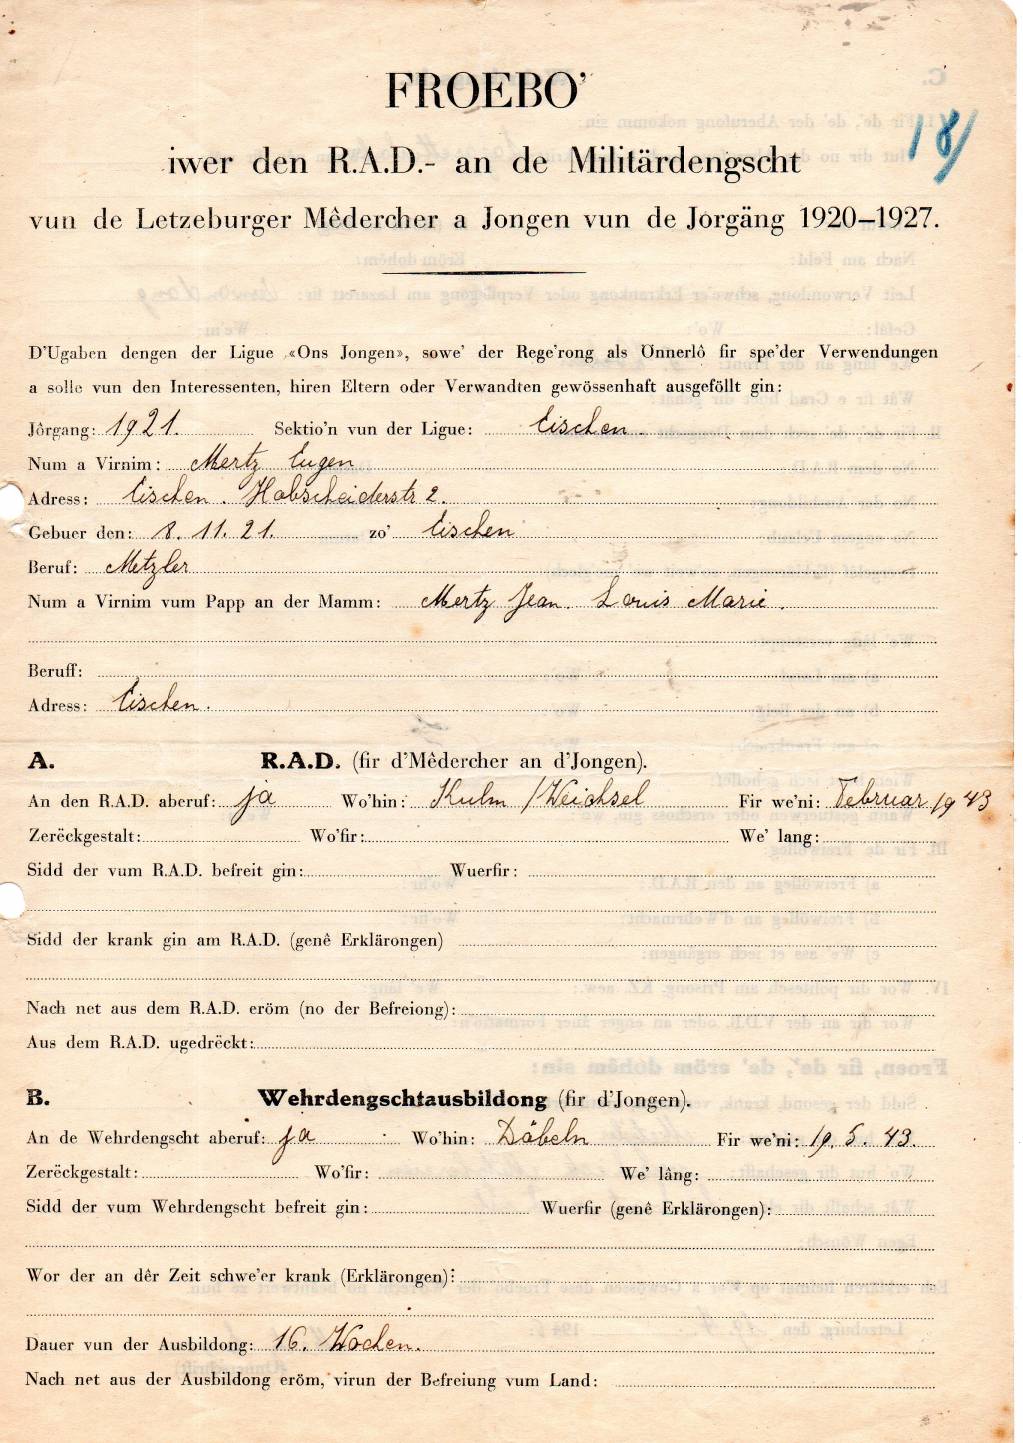 FROEBO'
18/
iwer den R.A.D.- an de Militärdengscht
vun de Letzeburger Mêdercher a Jongen vun de Jorgäng 1920–1927.
D'Ugaben dengen der Ligue «Ons Jongen», sowe' der Rege'rong als Önnerlô fir spe'der Verwendungen
a solle vun den Interessenten, hiren Eltern oder Verwandten gewössenhaft ausgeföllt gin:
Jôrgang: 1921. Sektio'n vun der Ligue: Eischen.
Num a Virnim: Mertz Eugen
Adress: Eischen. Habscheiderstr 2.
Gebuer den: 8. 11. 21. zo' Eischen
Beruf: Metzler
Num a Virnim vum Papp an der Mamm: Mertz Jean. Louis Marie.
Beruff:
Adress: Eischen.
A. R.A.D. (fir d'Mêdercher an d'Jongen).
An den R.A.D. aberuf: ja Wo'hin: Kulm / Weichsel Fir we'ni: Februar 1943
Zerëckgestalt: Wo'fir: We' lang:
Sidd der vum R.A.D. befreit gin: Wuerfir:
Sidd der krank gin am R.A.D. (genê Erklärongen)
Nach net aus dem R.A.D. eröm (no der Befreiong):
Aus dem R.A.D. ugedrëckt:
B. Wehrdengschtausbildong (fir d'Jongen).
An de Wehrdengscht aberuf: ja Wo'hin: Döbeln Fir we'ni: 19. 5. 43.
Zerëckgestalt: Wo'fir: We' lâng:
Sidd der vum Wehrdengscht befreit gin: Wuerfir (genê Erklärongen):
Wor der an dêr Zeit schwe'er krank (Erklärongen):
Dauer vun der Ausbildong: 16. Wochen.
Nach net aus der Ausbildong eröm, virun der Befreiung vum Land: